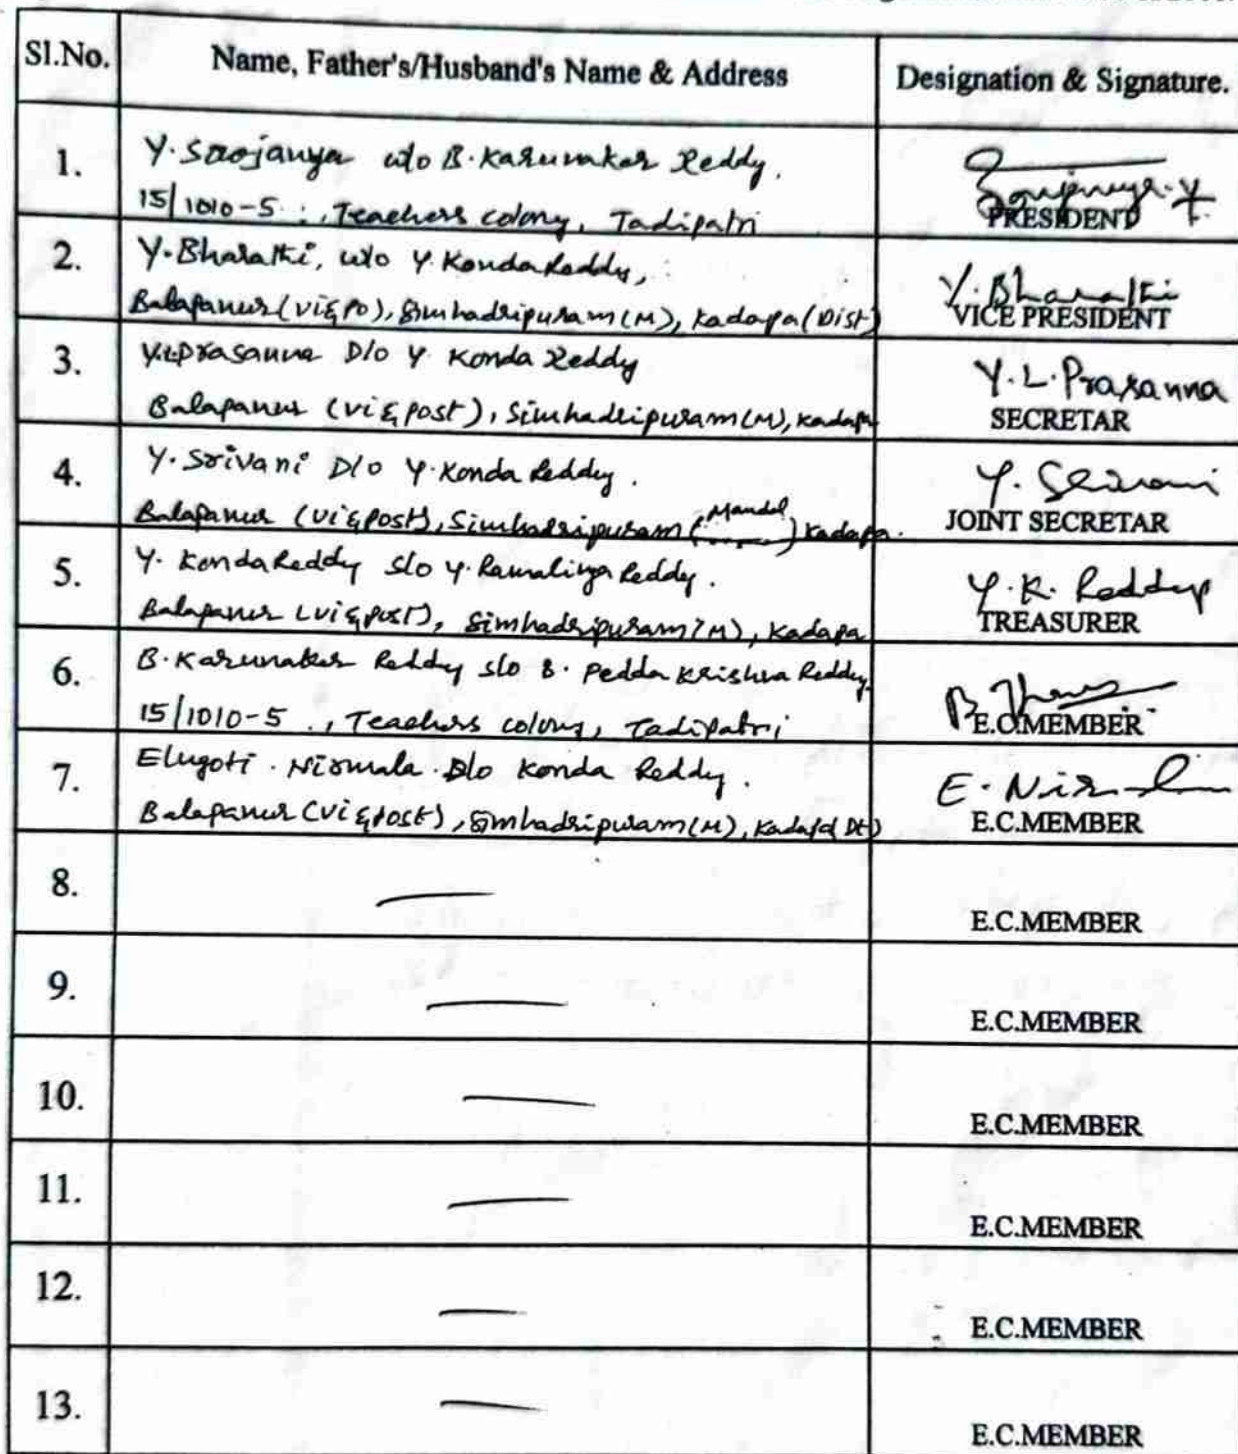 Sl.No. Name, Father's/Husband's Name & Address Designation & Signature.
1. Y. Sowjanya w/o B. Karunakar Reddy.
15/1010-5 ., Teachers colony, Tadipatri
Sowjanya. Y
PRESIDENT
2. Y. Bharathi, w/o Y. Konda Reddy,
Balapanur (Vi & PO), Simhadripuram (M), Kadapa (Dist)
Y. Bharathi
VICE PRESIDENT
3. Y.L. Prasanna D/o Y Konda Reddy
Balapanur (Vi & Post), Simhadripuram (M), Kadapa
Y. L. Prasanna
SECRETAR
4. Y. Srivani D/o Y. Konda Reddy.
Balapanur (Vi & Post), Simhadripuram (Mandal) Kadapa.
Y. Srivani
JOINT SECRETAR
5. Y. Konda Reddy S/o Y. Ramalinga Reddy.
Balapanur (Vi & Post), Simhadripuram (M), Kadapa
Y. K. Reddy
TREASURER
6. B. Karunakar Reddy S/o B. Pedda Krishna Reddy
15/1010-5 ., Teachers colony, Tadipatri
E.C.MEMBER
7. Elugoti . Nirmala . D/o Konda Reddy.
Balapanur (Vi & Post), Simhadripuram (M), Kadapa (Dt)
E. Nirmala
E.C.MEMBER
8. E.C.MEMBER
9. E.C.MEMBER
10. E.C.MEMBER
11. E.C.MEMBER
12. E.C.MEMBER
13. E.C.MEMBER